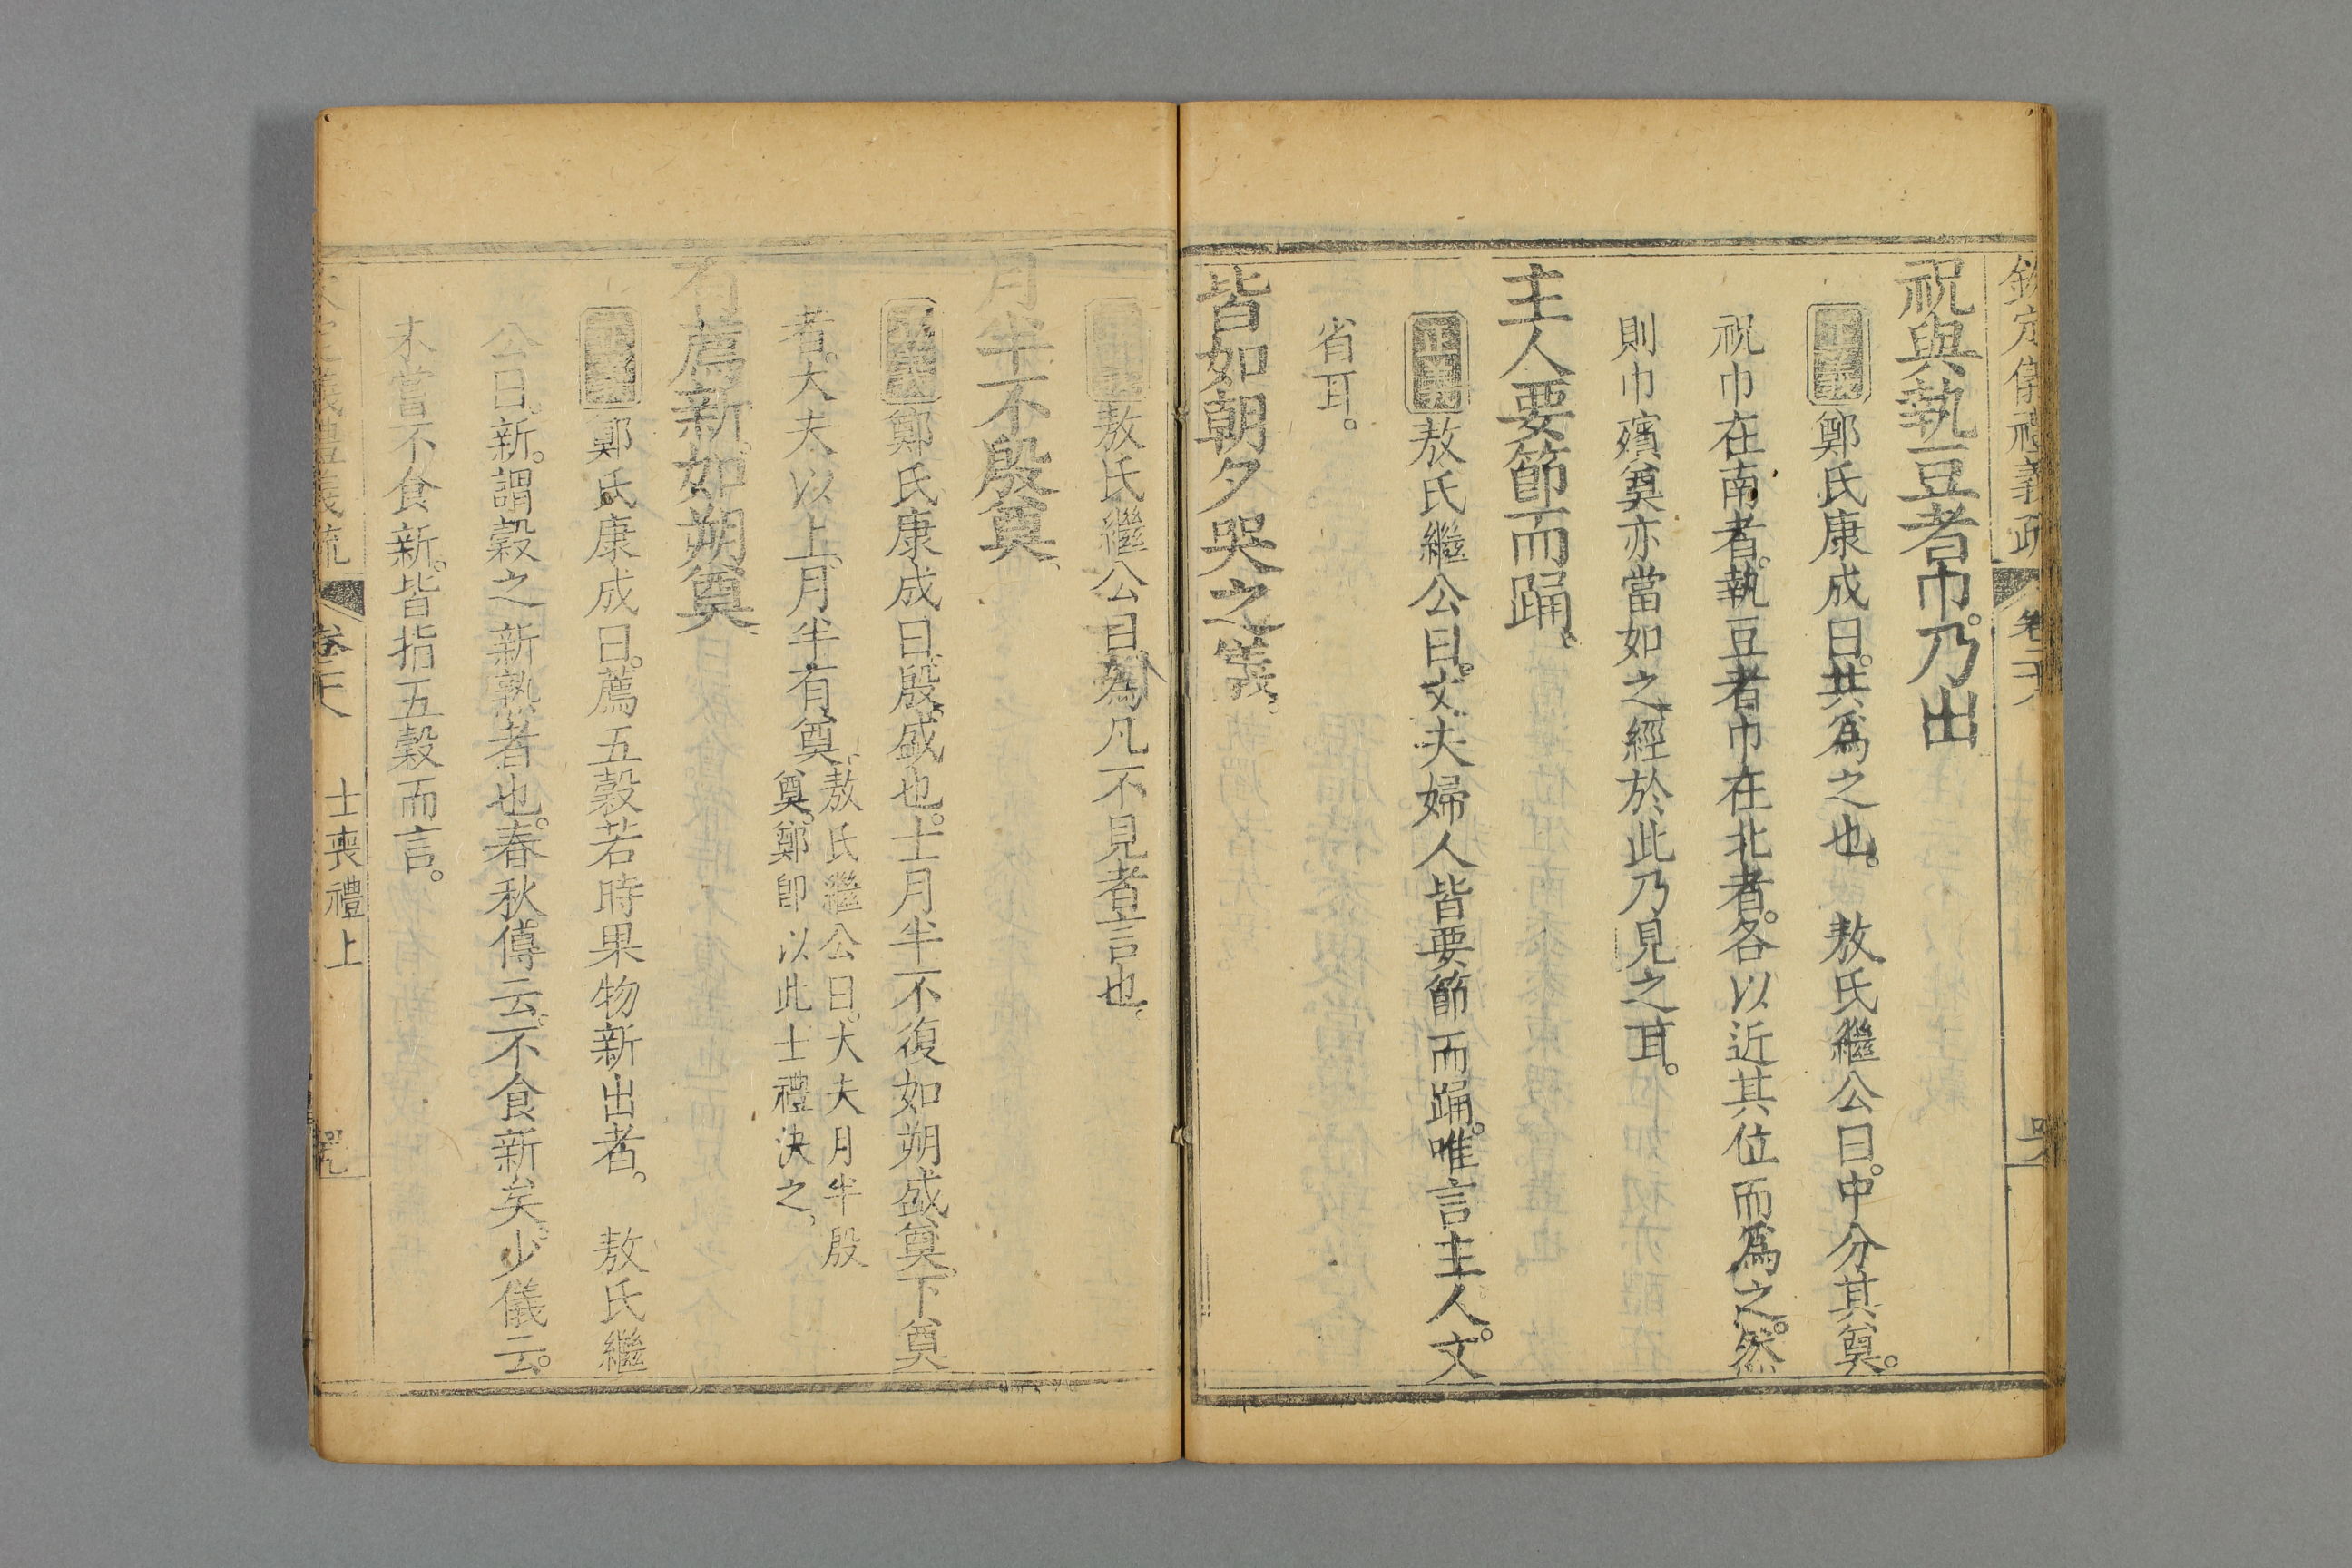 欽定儀禮義疏 卷二十八
祝與執豆者巾乃出
正義 鄭氏康成曰共爲之也。 敖氏繼公曰中分其奠。
祝巾在南者。執豆者巾在北者。各以近其位而爲之。然
則巾殯奠亦當如之經於此乃見之耳。
主人要節而踊、
正義 敖氏繼公曰。丈夫婦人皆要節而踊。唯言主人。文
省耳。
皆如朝夕哭之義。
敖氏繼公曰。爲凡不見者言也。
月半不殷奠、
正義 鄭氏康成曰。殷。盛也。士月半不復如朔盛奠。下奠
者。大夫以上。月半有奠。敖氏繼公曰。大夫月半殷
奠。鄭卽以此士禮決之。
有薦新。如朔奠
正義 鄭氏康成曰。薦五穀若時果物新出者。 敖氏繼
公曰。新。謂穀之新熟者也。春秋傳云。不食新矣。少儀云。
未嘗不食新。皆指五穀而言。
欽定儀禮義疏 卷二十八 士喪禮上